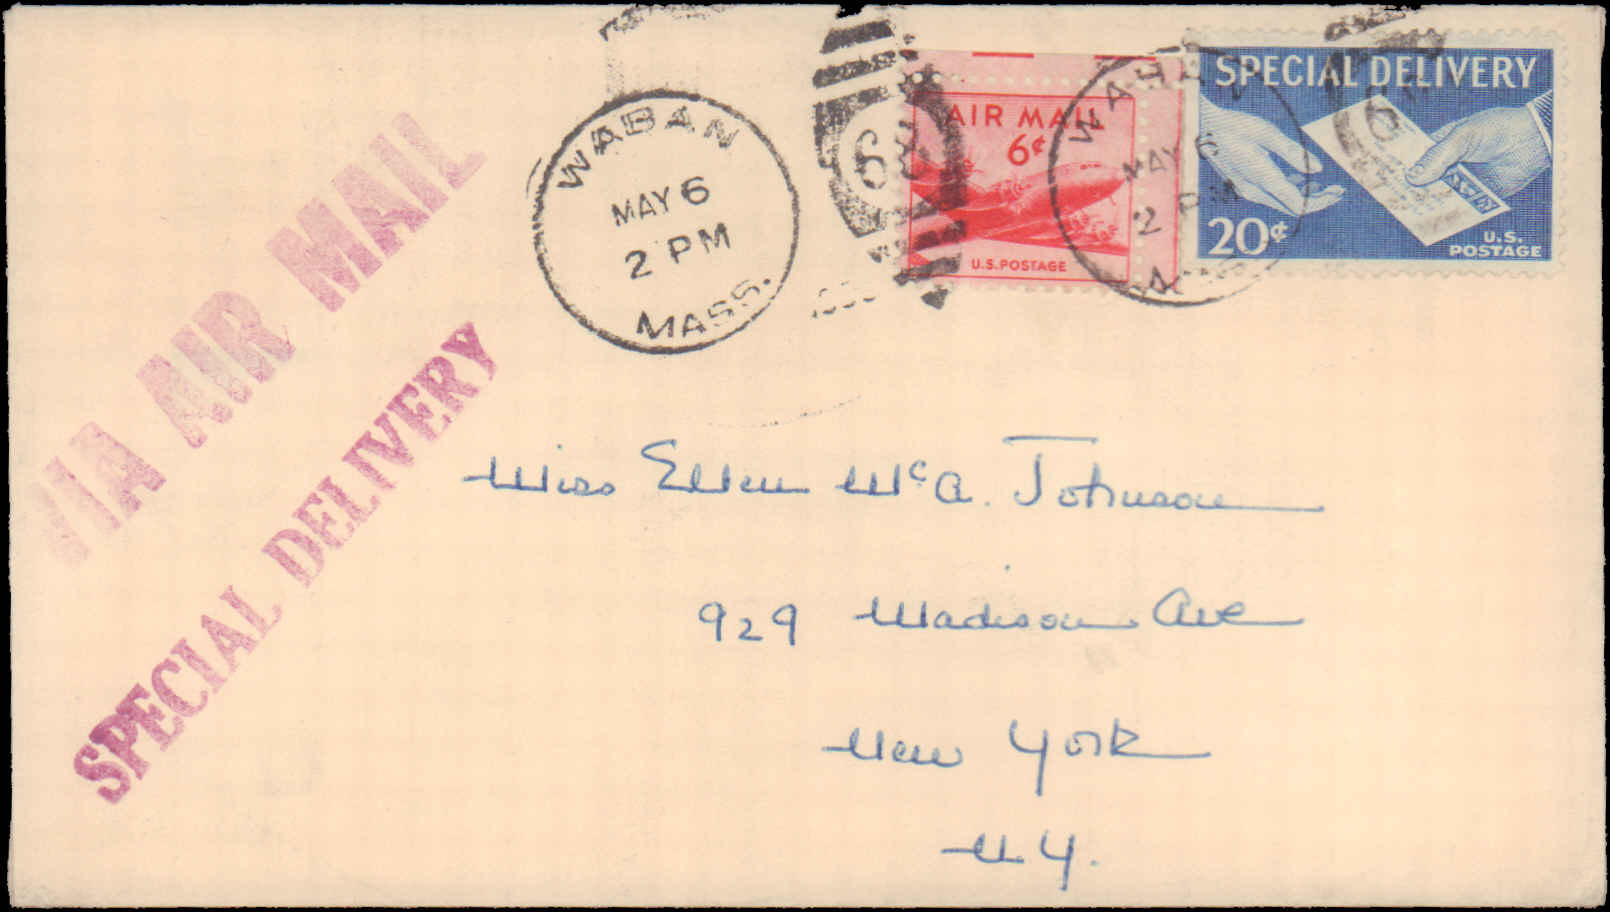 VIA AIR MAIL
SPECIAL DELIVERY
WABAN
MAY 6
2 PM
MASS.
AIR MAIL
6¢
U.S. POSTAGE
MAY 6
2 PM
SPECIAL DELIVERY
20¢
U.S.
POSTAGE
Miss Ellen McA. Johnson
929 Madison Ave
New York
N.Y.